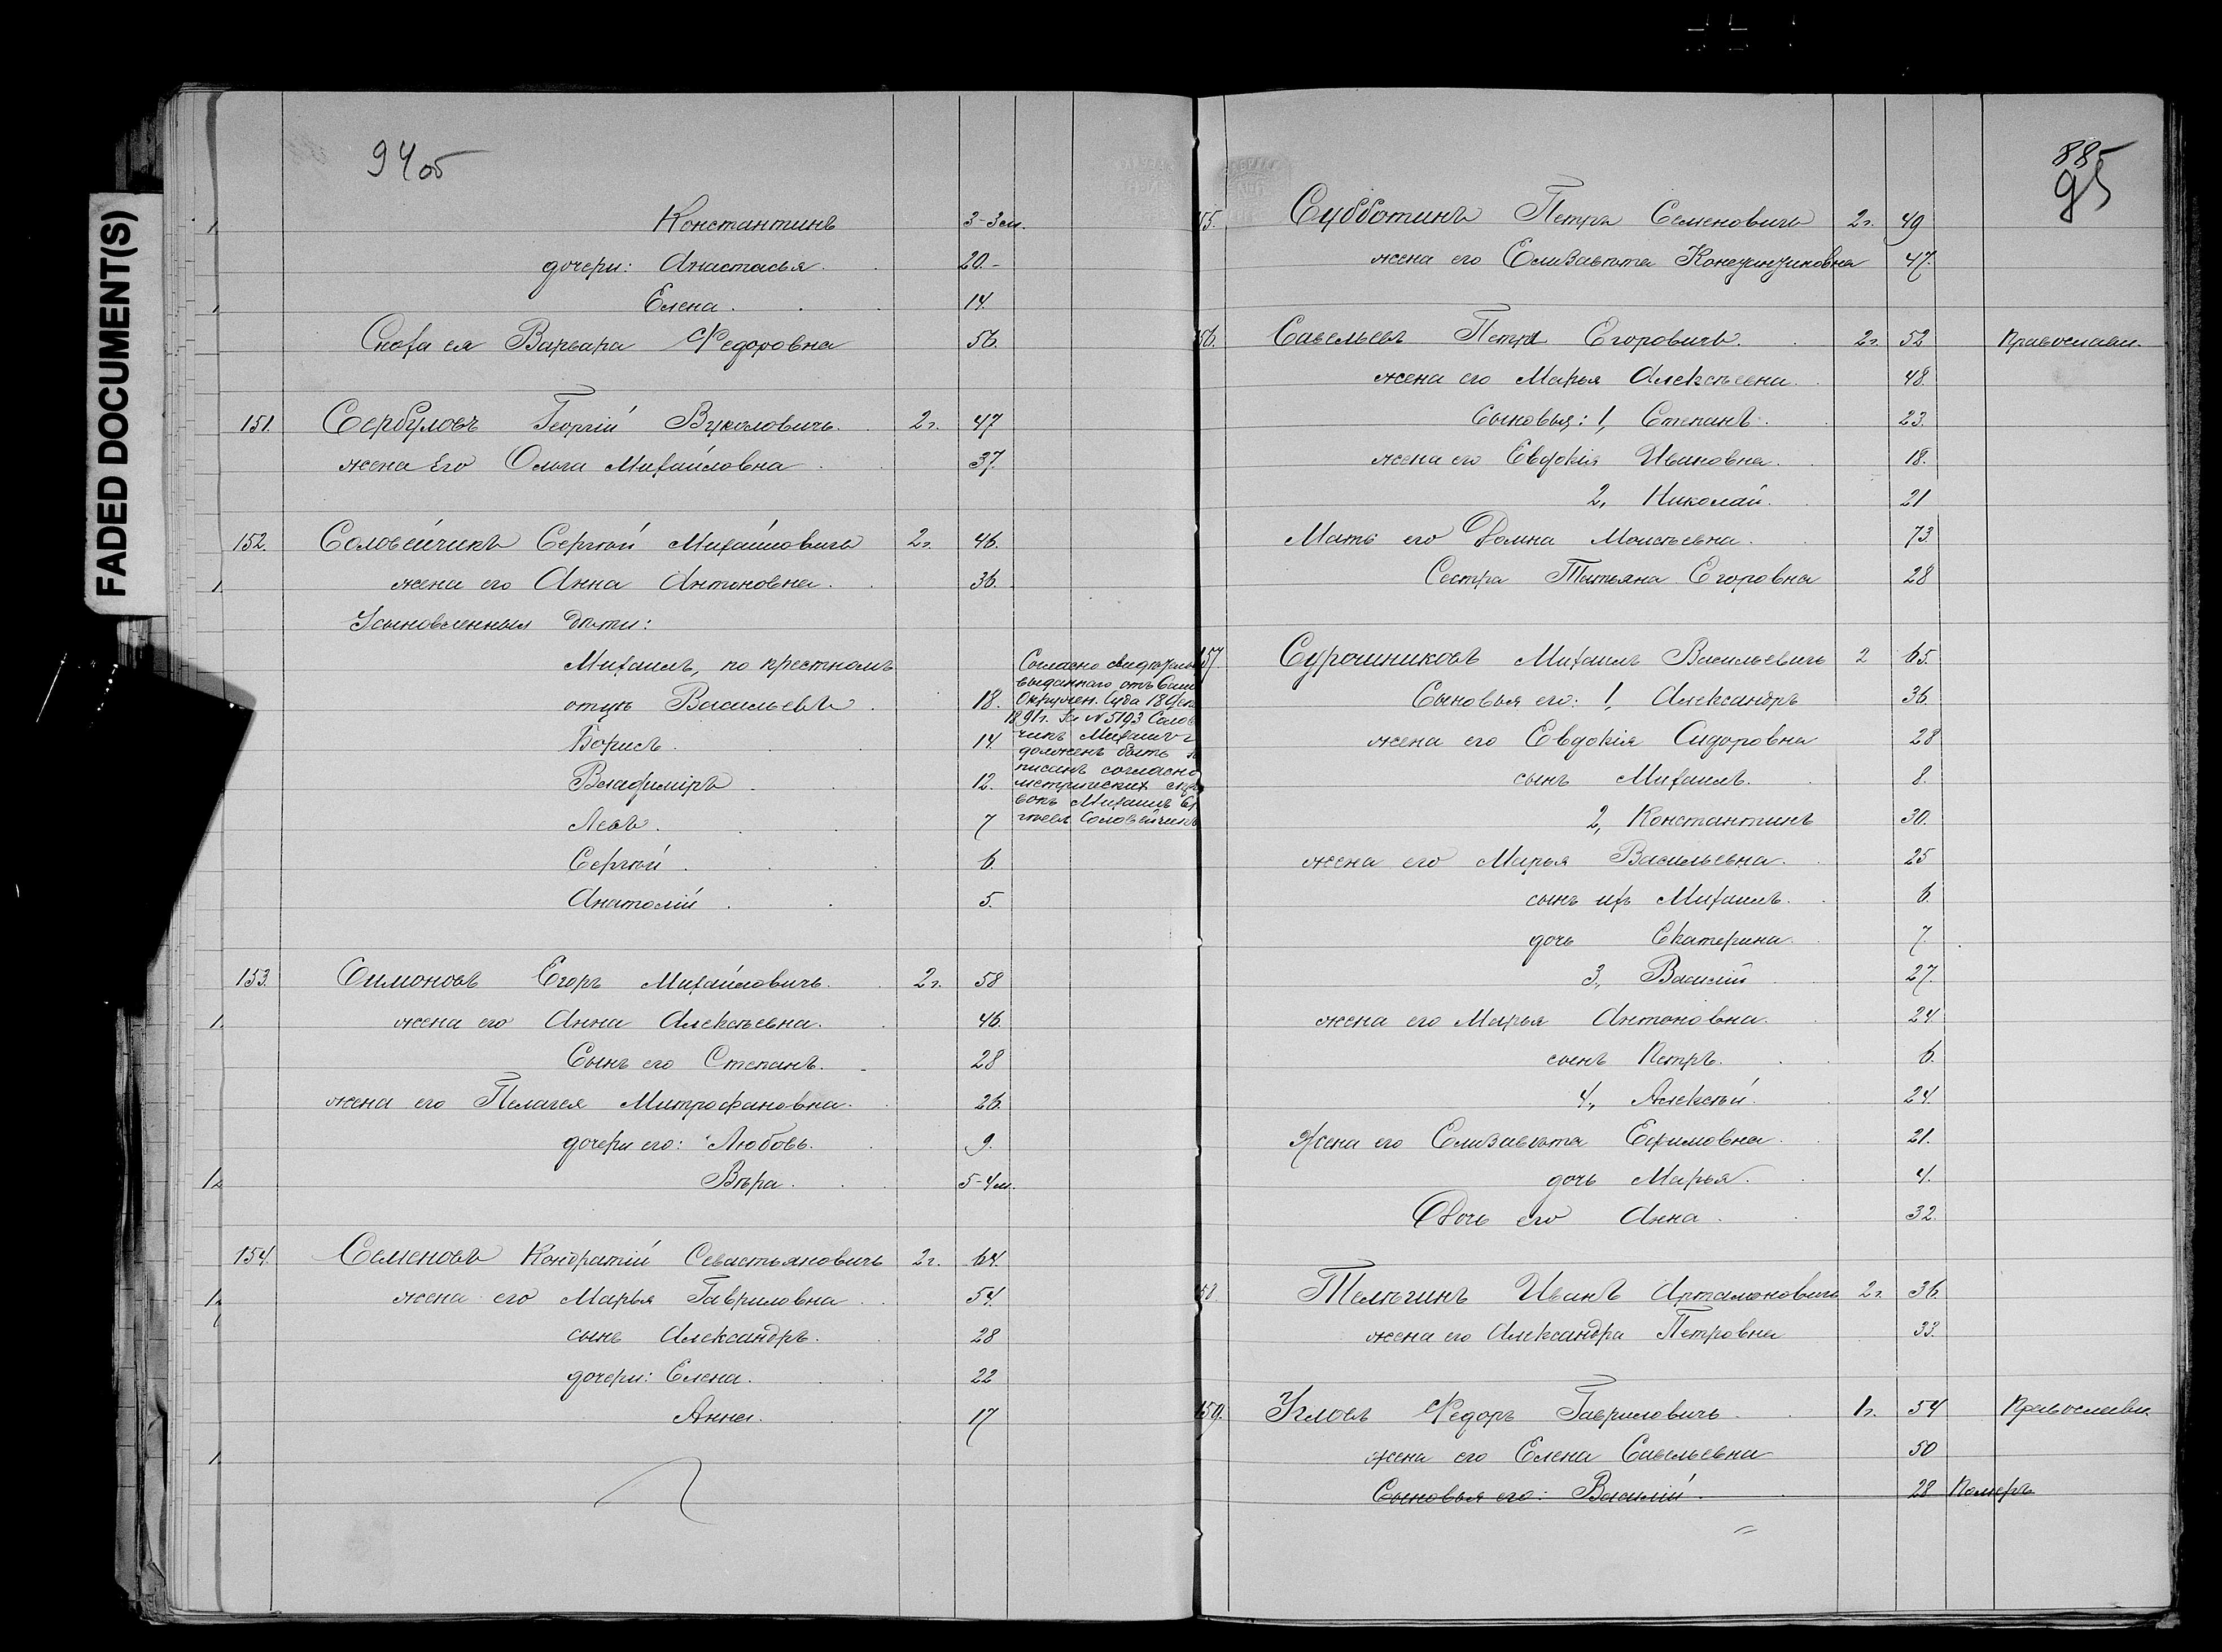 FADED DOCUMENT(S)
94 об
Константинъ 3-3 м.
дочери: Анастасья. 20.-
Елена. 14.
Сноха ея Варвара Ѳедоровна 56.
151. Сербуловъ Георгій Вуколовичъ. 2г. 47
жена Его Ольга Михайловна 37.
152. Соловейчикъ Сергѣй Михайловичъ 2г. 46.
жена его Анна Антоновна. 36.
Усыновленныя дѣти:
Михаилъ, по крестномъ
отцѣ Васильевъ. 18.
Борисъ. 14.
Владиміръ 12.
Левъ. 7
Сергѣй. 6.
Анатолій. 5.
Согласно
выданнаго отъ
Окружн. Суда 18
1891г. За №5193
чикъ Михаилъ
долженъ быть
писанъ согласно
метрическихъ
вокъ Михаилъ
гѣевъ Соловейчикъ
153. Симоновъ Егоръ Михайловичъ. 2г. 58
жена его Анна Алексѣевна. 46.
Сынъ его Степанъ. 28
жена его Пелагея Митрофановна. 26.
дочери его: Любовь. 9.
Вѣра. 5-4 м.
154. Семеновъ Кондратій Севастьяновичъ 2г. 64.
жена его Марья Гавриловна 54.
сынъ Александръ. 28
дочери: Елена. 22
Анна. 17
885
95
55. Субботинъ Петръ Семеновичъ 2г. 49
жена его Елизавѣта Константиновна 47.
56. Савельевъ Петръ Егоровичъ. 2г. 52 Православн.
жена его Марья Алексѣевна. 48.
Сыновья: 1, Степанъ. 23.
жена его Евдокія Ивановна. 18.
2, Николай. 21
Мать его Домна Моисѣевна. 73.
Сестра Татьяна Егоровна 28
157. Сурошниковъ Михаилъ Васильевичъ 2 65.
Сыновья его: 1, Александръ 36.
жена его Евдокія Сидоровна 28
сынъ Михаилъ. 8.
2, Константинъ 30.
жена его Марья Васильевна. 25
сынъ ихъ Михаилъ. 6.
дочь Екатерина. 7.
3, Василій 27.
жена его Марья Антоновна. 24
сынъ Петръ. 6.
4, Алексѣй. 24.
Жена его Елизавѣта Ефимовна. 21.
дочь Марья. 4.
Дочь его Анна. 32.
58. Телѣгинъ Иванъ Артамоновичъ 2г. 36.
жена его Александра Петровна 33.
159. Угловъ Ѳедоръ Гавриловичъ. 1г. 54 Православн.
жена его Елена Савельевна 50
Сыновья его: Василій. 28 Померъ